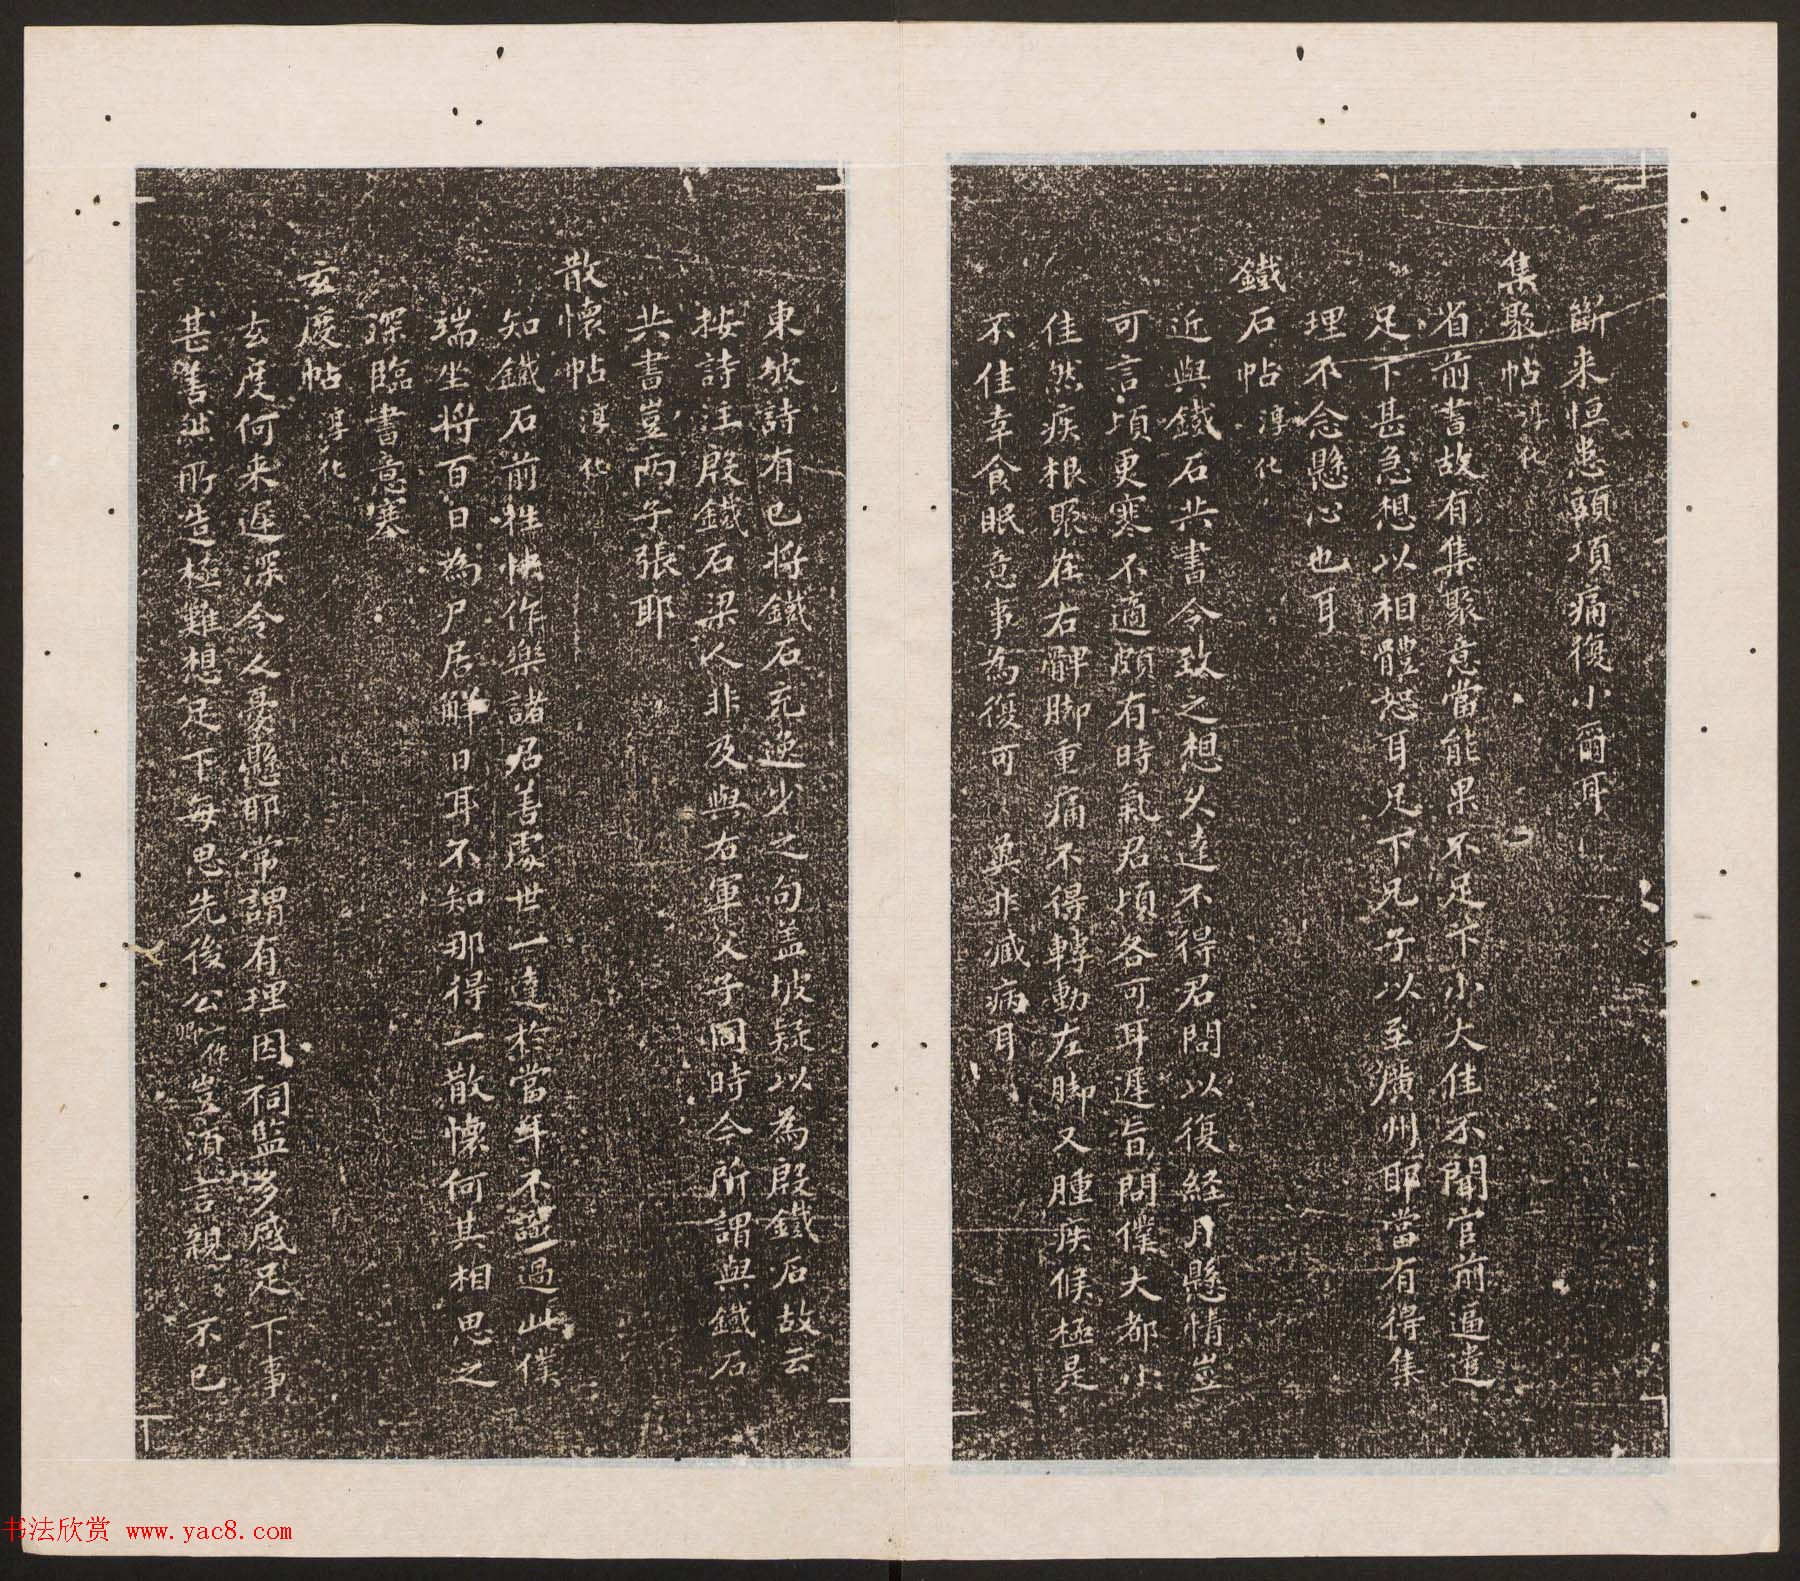 斷来恒患頭項痛復小爾耳
集聚帖 淳化
省前書故有集聚意當能果不足下小大佳不聞官前逼遣
足下甚急想以相體恕耳足下兄子以至廣州耶當有得集
理不念懸心也耳
鐵石帖 淳化
近與鐵石共書令致之想久達不得君問以復経月懸情豈
可言頃更寒不適頗有時氣君頃各可耳遲旨問僕大都小
佳然疾根聚在右髀脚重痛不得轉動左脚又腫疾候極是
不佳幸食眠意事為復可 冀非臧病耳
東坡詩有已將鐵石充逸少之句盖坡疑以為殷鐵石故云
按詩注殷鐵石梁人非及與右軍父子同時今所謂與鐵石
共書豈兩子張耶
散懷帖 淳化
知鐵石前往快作樂諸君善處世一達於當年不謂過此僕
端坐将百日為尸居解日耳不知那得一散懷何其相思之
深臨書意塞
玄度帖 淳化
玄度何来遅深令人憂懸耶常謂有理因祠監多感足下事
甚善然所造極難想足下每思先後公一作卿豈須言親 不已
书法欣赏 www.yac8.com